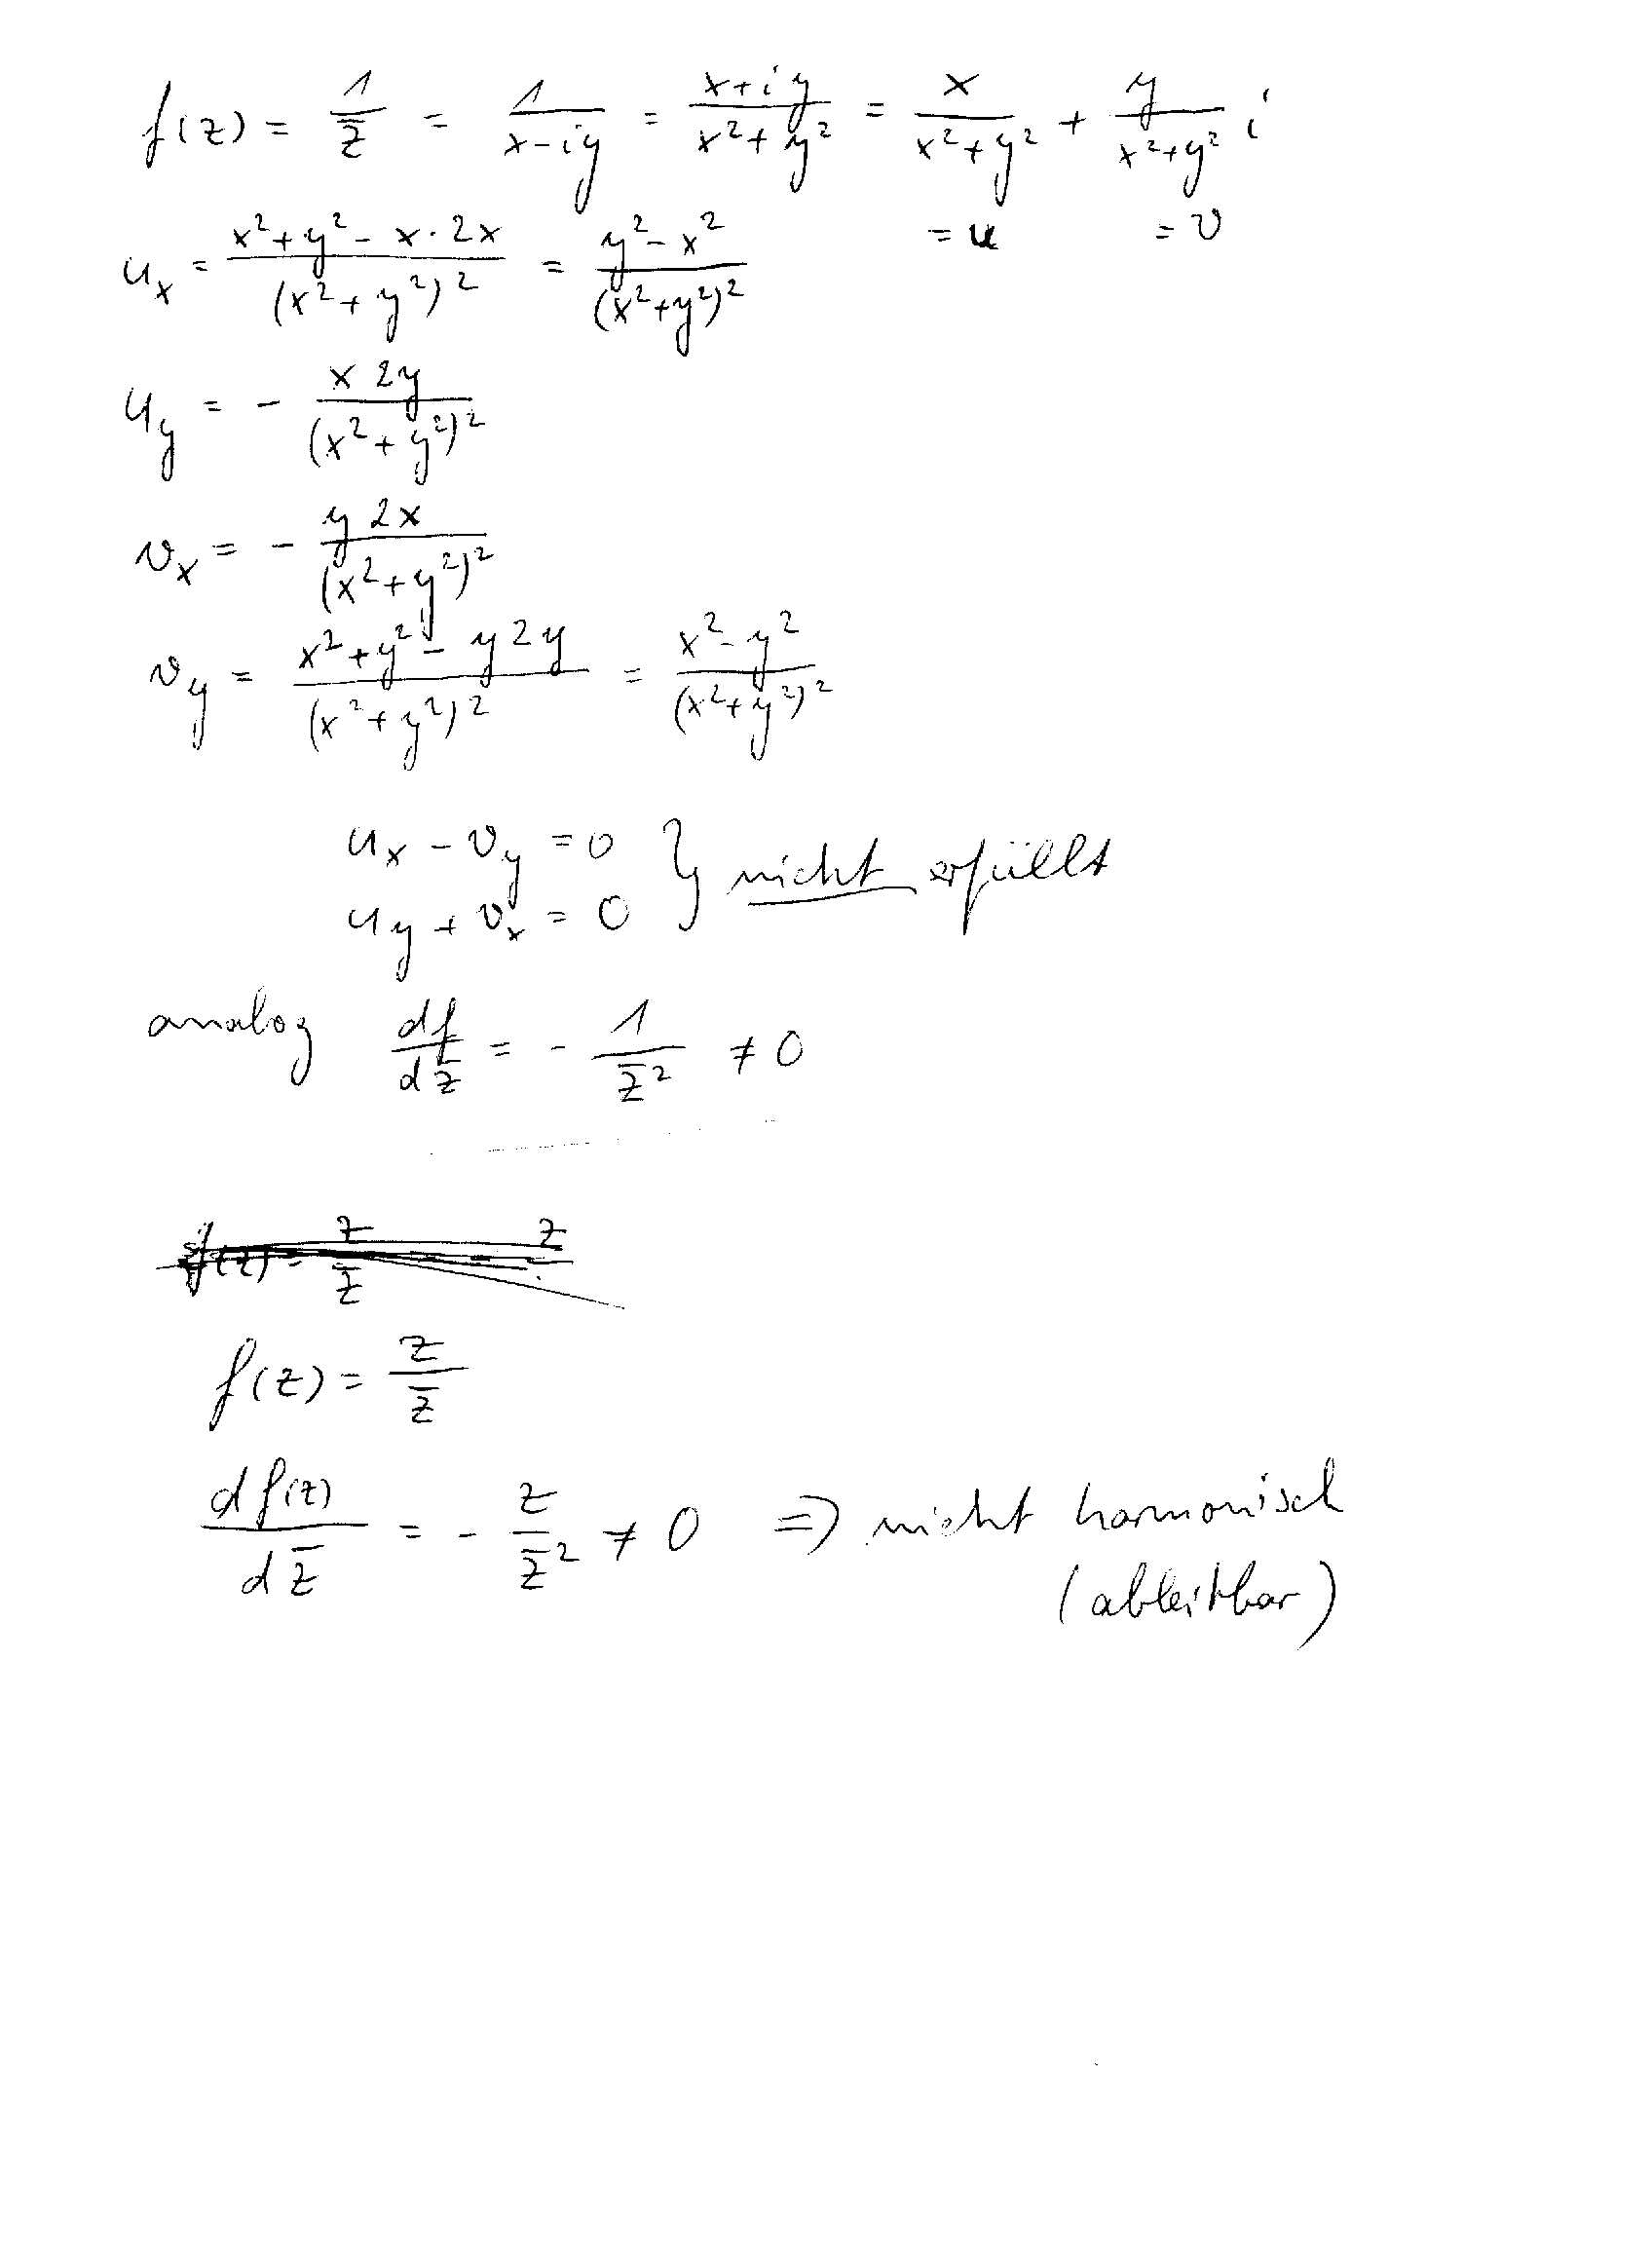 f(z) = 1/z̅ = 1/(x-iy) = (x+iy)/(x²+y²) = x/(x²+y²) + y/(x²+y²) i
= u = v
u_x = (x²+y² - x·2x)/(x²+y²)² = (y²-x²)/(x²+y²)²
u_y = - (x 2y)/(x²+y²)²
v_x = - (y 2x)/(x²+y²)²
v_y = (x²+y² - y2y)/(x²+y²)² = (x²-y²)/(x²+y²)²
u_x - v_y = 0 } nicht erfüllt
u_y + v_x = 0
analog df/dz̅ = - 1/z̅² ≠ 0
f(z) = z/z̅
df(z)/dz̅ = - z/z̅² ≠ 0 ⇒ nicht harmonisch
(ableitbar)